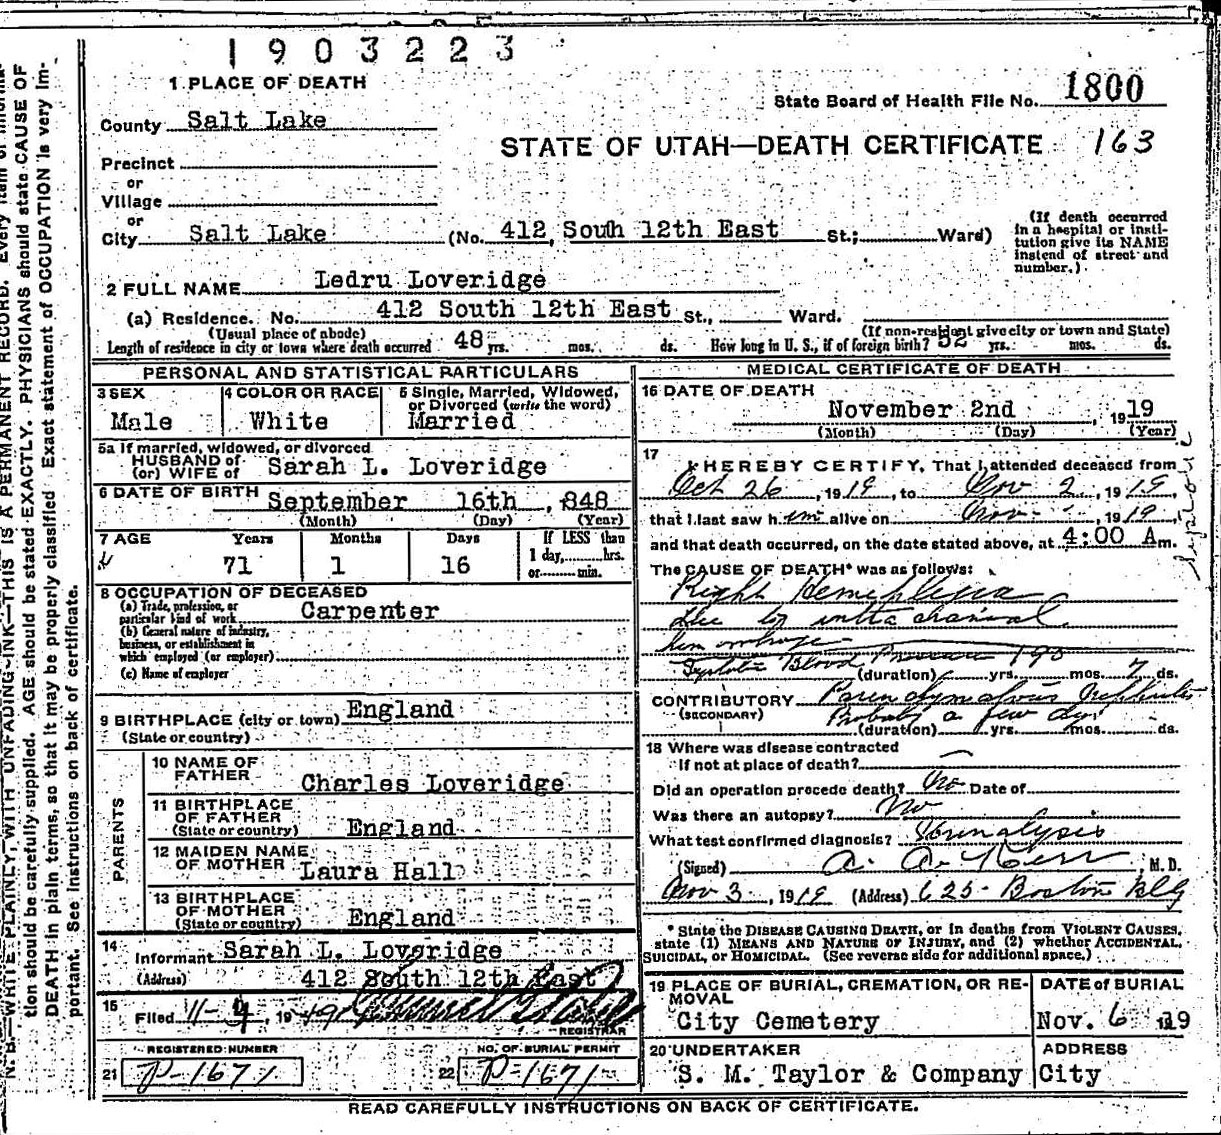 1903223
1 PLACE OF DEATH
State Board of Health File No. 1800
County Salt Lake
STATE OF UTAH—DEATH CERTIFICATE 163
Precinct
or
Village
or
City Salt Lake (No. 412, South 12th East St.; Ward)
(If death occurred in a hospital or institution give its NAME instead of street and number.)
2 FULL NAME Ledru Loveridge
(a) Residence. No. 412 South 12th East St., Ward.
(Usual place of abode) (If non-resident give city or town and State)
Length of residence in city or town where death occurred 48 yrs. mos. ds. How long in U. S., if of foreign birth? 52 yrs. mos. ds.
PERSONAL AND STATISTICAL PARTICULARS
3 SEX
Male
4 COLOR OR RACE
White
5 Single, Married, Widowed,
or Divorced (write the word)
Married
5a If married, widowed, or divorced
HUSBAND of
(or) WIFE of Sarah L. Loveridge
6 DATE OF BIRTH September 16th, 848
(Month) (Day) (Year)
7 AGE Years Months Days
71 1 16
If LESS than
1 day,......hrs.
or......min.
8 OCCUPATION OF DECEASED
(a) Trade, profession, or
particular kind of work Carpenter
(b) General nature of industry,
business, or establishment in
which employed (or employer)
(c) Name of employer
9 BIRTHPLACE (city or town) England
(State or country)
PARENTS
10 NAME OF
FATHER Charles Loveridge
11 BIRTHPLACE
OF FATHER
(State or country) England
12 MAIDEN NAME
OF MOTHER Laura Hall
13 BIRTHPLACE
OF MOTHER
(State or country) England
14
Informant Sarah L. Loveridge
(Address) 412 South 12th East
15
Filed 11-4, 1919
REGISTRAR
REGISTERED NUMBER
21 P-1671
NO. OF BURIAL PERMIT
22 P-1671
MEDICAL CERTIFICATE OF DEATH
16 DATE OF DEATH
November 2nd, 1919
(Month) (Day) (Year)
17
I HEREBY CERTIFY, That I attended deceased from
Oct 26, 1919, to Nov 2, 1919
that I last saw him alive on Nov 1, 1919,
and that death occurred, on the date stated above, at 4:00 A m.
The CAUSE OF DEATH* was as follows:
Right Hemiplegia
due to intra cranial
hemorrhage
Systolic Blood Pressure 190
(duration) yrs. mos. 7 ds.
CONTRIBUTORY Parenchymatous Nephritis
(SECONDARY) Probably a few days
(duration) yrs. mos. ds.
18 Where was disease contracted
if not at place of death?
Did an operation precede death? No Date of
Was there an autopsy? No
What test confirmed diagnosis? Urinalysis
(Signed) A. A. Kerr M. D.
Nov 3, 1919 (Address) 625 Boston Bldg
* State the DISEASE CAUSING DEATH, or in deaths from VIOLENT CAUSES,
state (1) MEANS AND NATURE OF INJURY, and (2) whether ACCIDENTAL,
SUICIDAL, or HOMICIDAL. (See reverse side for additional space.)
19 PLACE OF BURIAL, CREMATION, OR RE-
MOVAL
City Cemetery
DATE of BURIAL
Nov. 6 1919
20 UNDERTAKER
S. M. Taylor & Company
ADDRESS
City
READ CAREFULLY INSTRUCTIONS ON BACK OF CERTIFICATE.
N. B.—WRITE PLAINLY, WITH UNFADING INK—THIS IS A PERMANENT RECORD. Every item of informa-
tion should be carefully supplied. AGE should be stated EXACTLY. PHYSICIANS should state CAUSE OF
DEATH in plain terms, so that it may be properly classified. Exact statement of OCCUPATION is very im-
portant. See instructions on back of certificate.